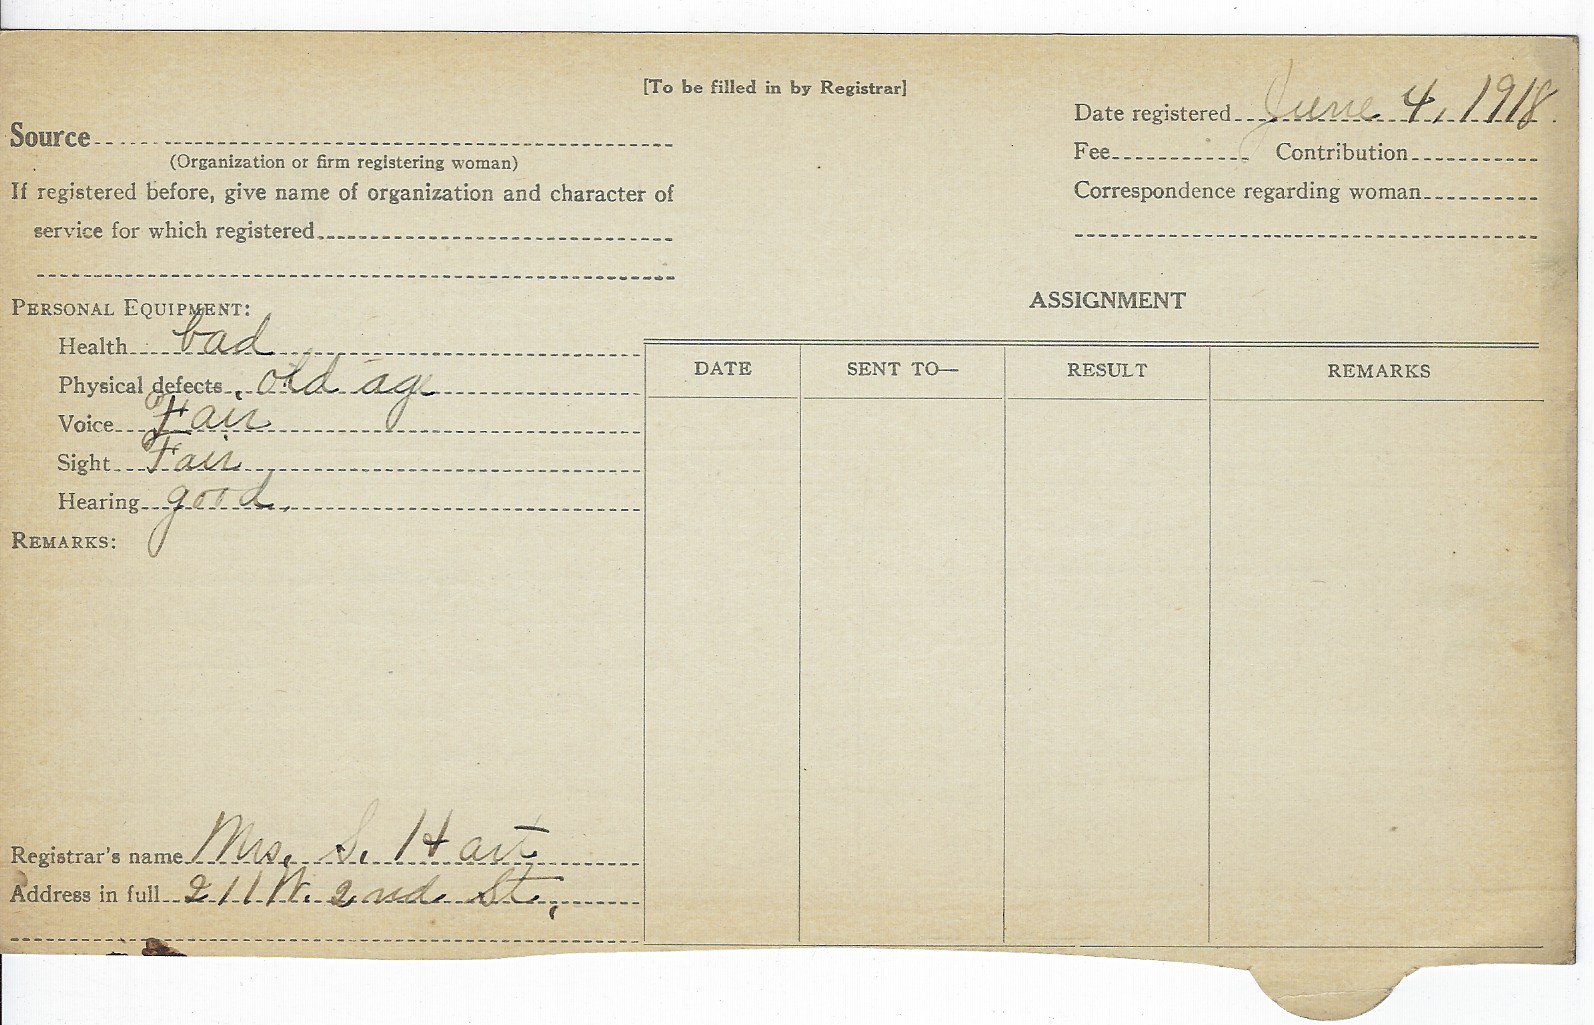 [To be filled in by Registrar]
Date registered June 4, 1918.
Source
(Organization or firm registering woman)
Fee Contribution
If registered before, give name of organization and character of
service for which registered
Correspondence regarding woman
PERSONAL EQUIPMENT:
Health bad
Physical defects old age
Voice Fair
Sight Fair
Hearing good.
REMARKS:
Registrar's name Mrs. S. Hart
Address in full 211 W. 2nd St.,
ASSIGNMENT
DATE SENT TO— RESULT REMARKS